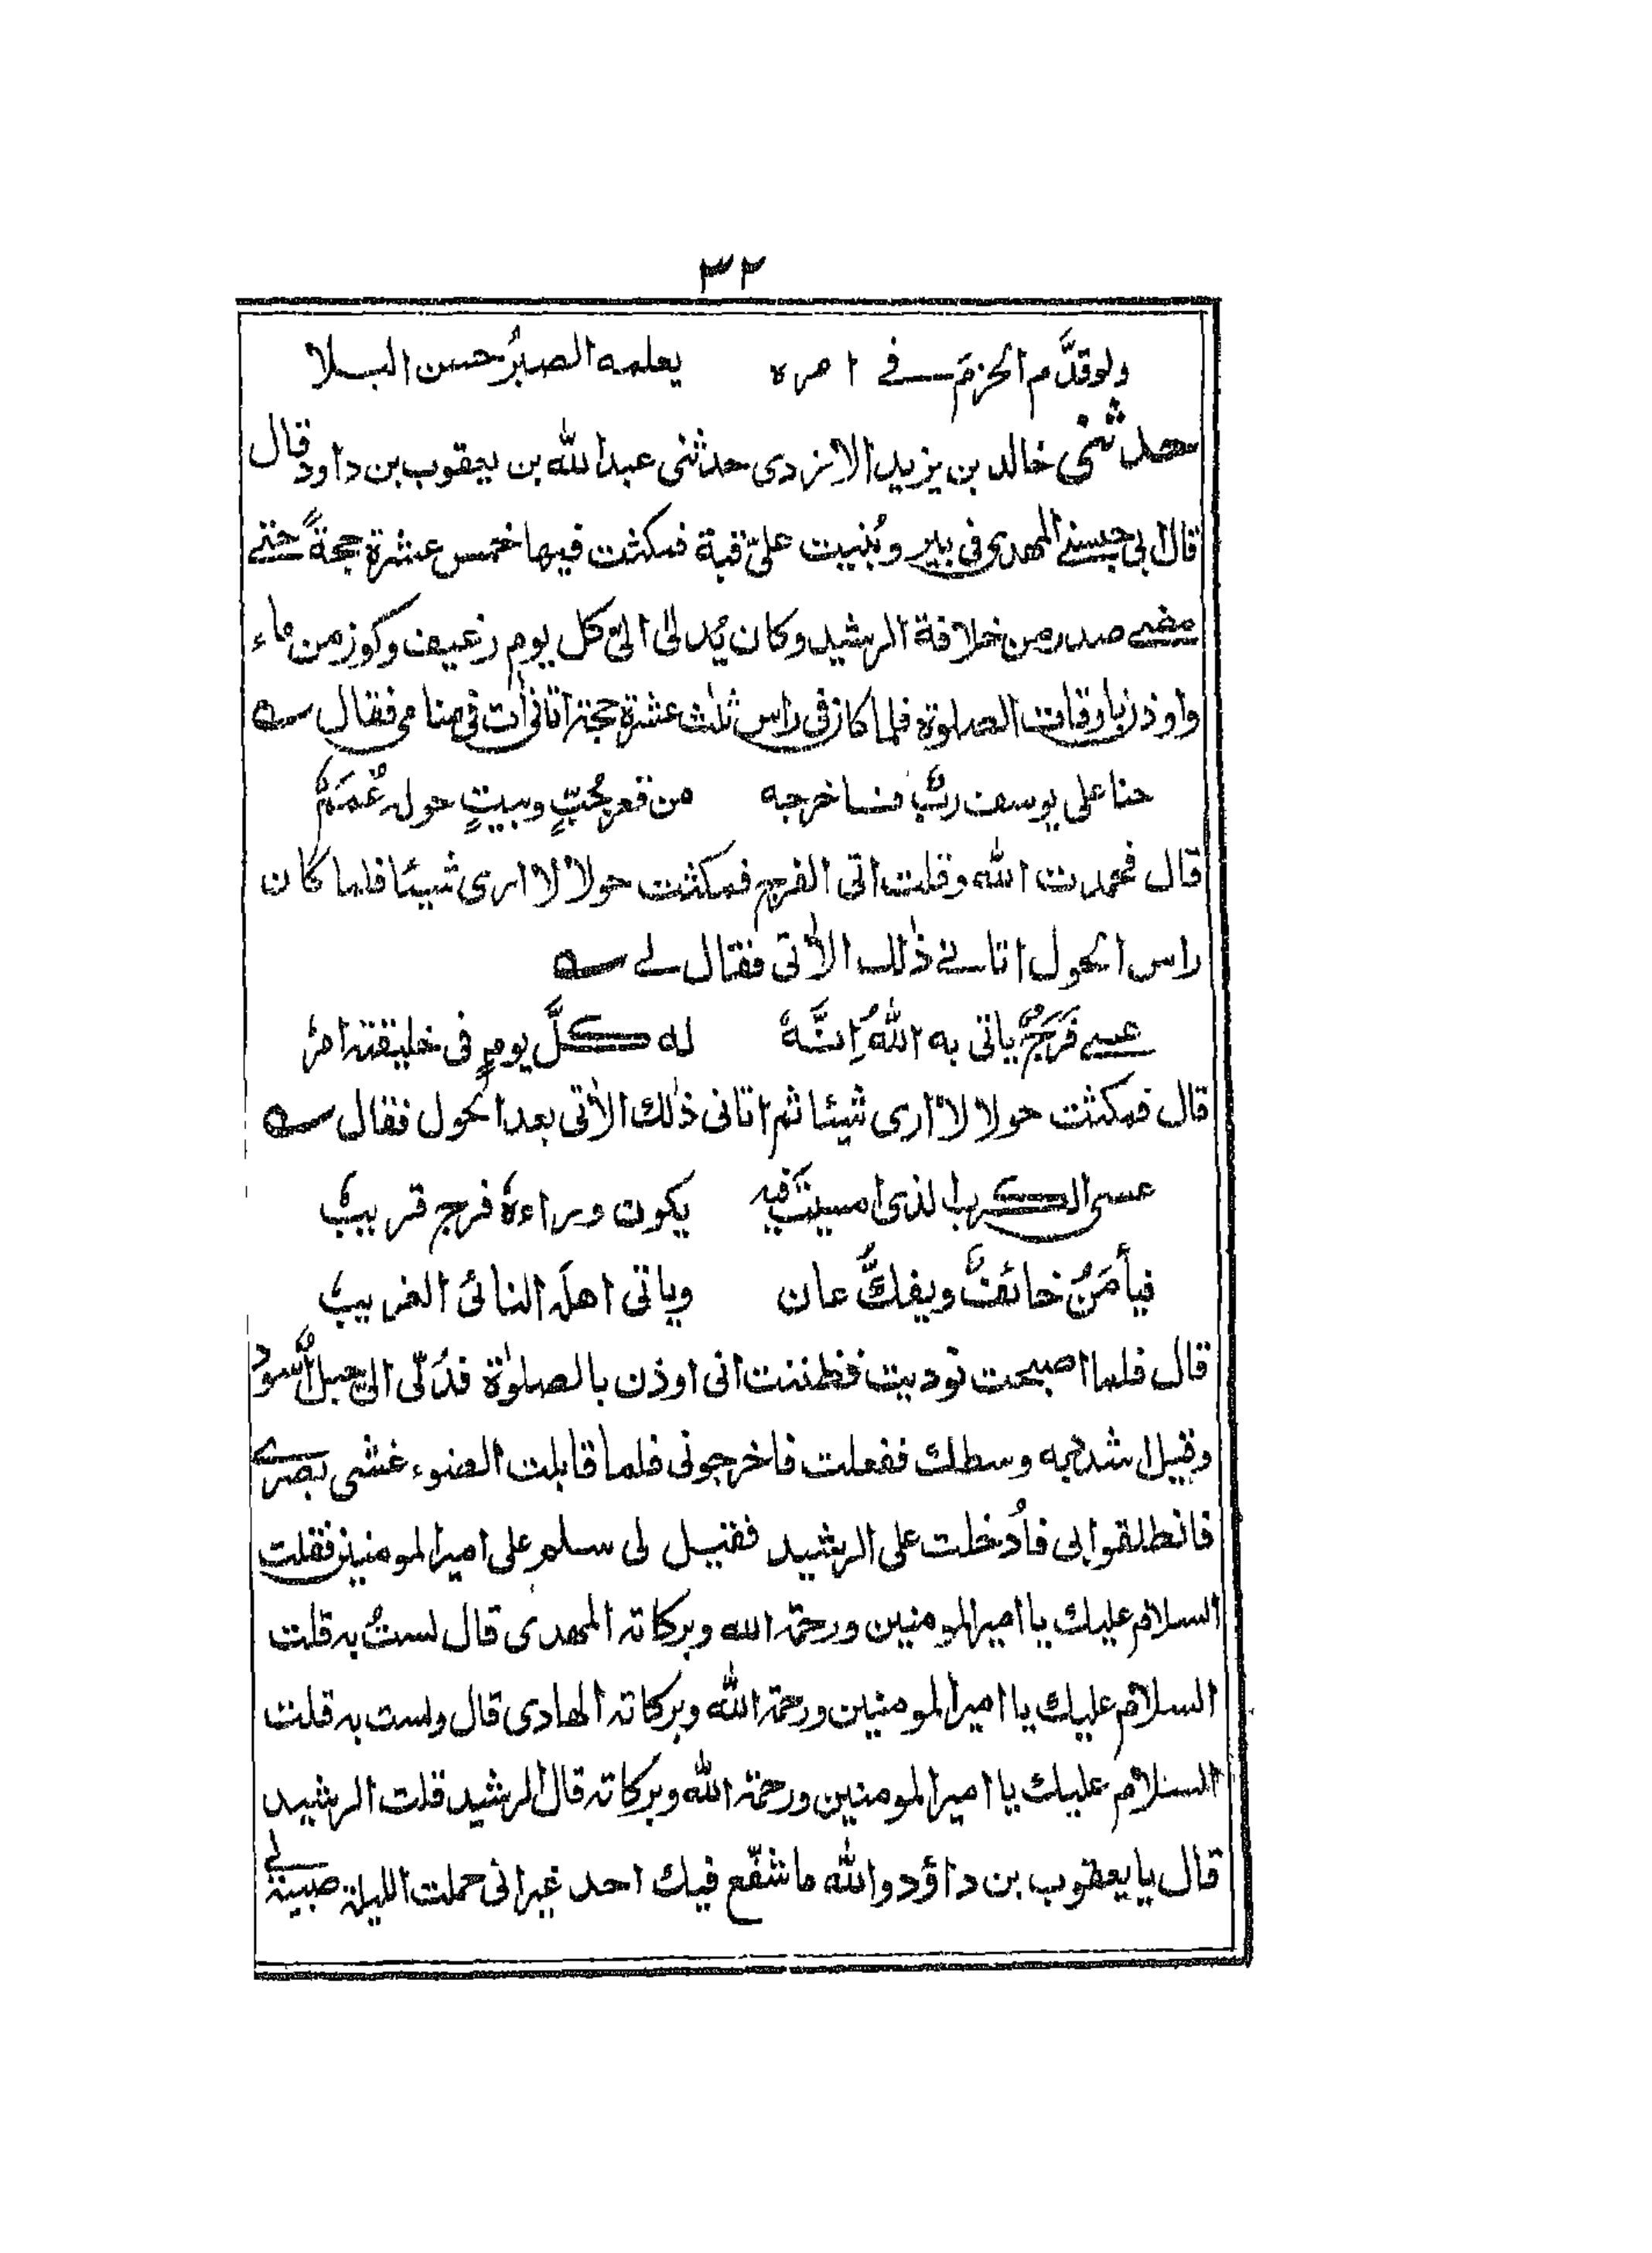 ٣٢
ولو قدَّم الحزمَ في امره يعلمه الصبرُ حسن البلا
حدثنى خالد بن يزيد الازدى حدثنى عبدالله بن يعقوب بن داود قال
قال ابى حبسنے المهدى فى بير و بُنيت علىّ قبة فمكثت فيها خمس عشرة حجةً حتے
مضے صدر من خلافة الرشيد وكان يُدلىٰ الىّ كل يوم رغيف وكوز من ماء
واوذن باوقات الصلوة فلما كان فى راس ثلٰث عشرة حجة اتانى اٰت فى منامى فقال
حنا على يوسف ربٌّ فاخرجه من قعر جُبٍّ وبيتٍ حوله غُمَمٌ
قال فحمدت الله وقلت اتى الفرج فمكثت حولا لا ارى شيئا فلما كان
راس الحول اتانے ذٰلك الاٰتى فقال لے
عسے فَرَجٌ ياتى به اللهُ اِنَّهٗ له كلَّ يومٍ فى خليقته امرٌ
قال فمكثت حولا لا ارى شيئا ثم اتانى ذٰلك الاٰتى بعد الحول فقال
عسى الكرب الذى امسيتَ فيه يكون وراءهٗ فرج قريبٌ
فيأمَنُ خائفٌ ويفكُّ عان وياتى اهلَه النائىُ الغريبُ
قال فلما اصبحت نوديت فظننت انى اوذن بالصلوٰة فدُلّى الىّ حبل اسود
وقيل اشدد به وسطك ففعلت فاخرجونى فلما قابلت الضوء غشى بصرے
فانطلقوا بى فاُدخلت على الرشيد فقيل لى سلم على امير المومنين فقلت
السلام عليك يا امير المومنين ورحمة الله وبركاته المهدى قال لستُ به قلت
السلام عليك يا امير المومنين ورحمة الله وبركاته الهادى قال ولست به قلت
السلام عليك يا امير المومنين ورحمة الله وبركاته قال الرشيد قلت الرشيد
قال يا يعقوب بن داؤد والله ما شفّع فيك احد غير انى حملت الليلة صبية لے